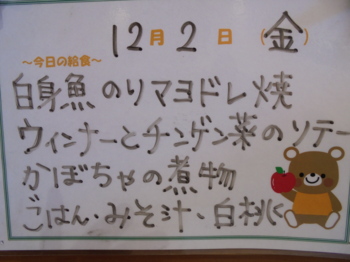 12月2日(金)
～今日の給食～
白身魚のりマヨドレ焼
ウィンナーとチンゲン菜のソテー
かぼちゃの煮物
ごはん・みそ汁・白桃